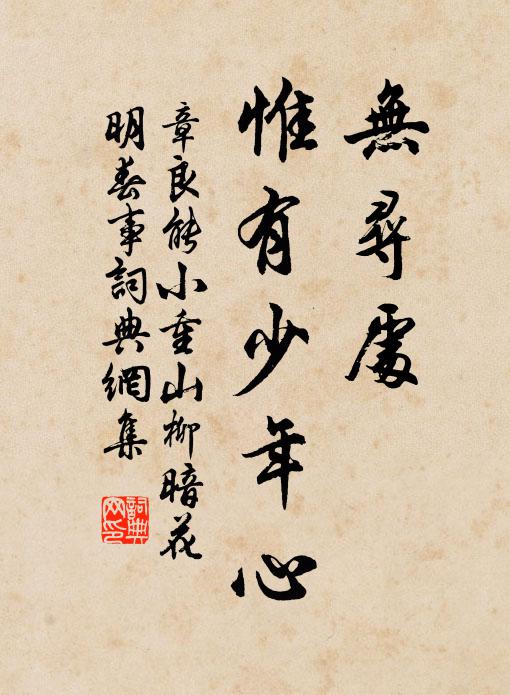 無尋處
惟有少年心
章良能小重山柳暗花
明春事詞典網集
詞典
网印